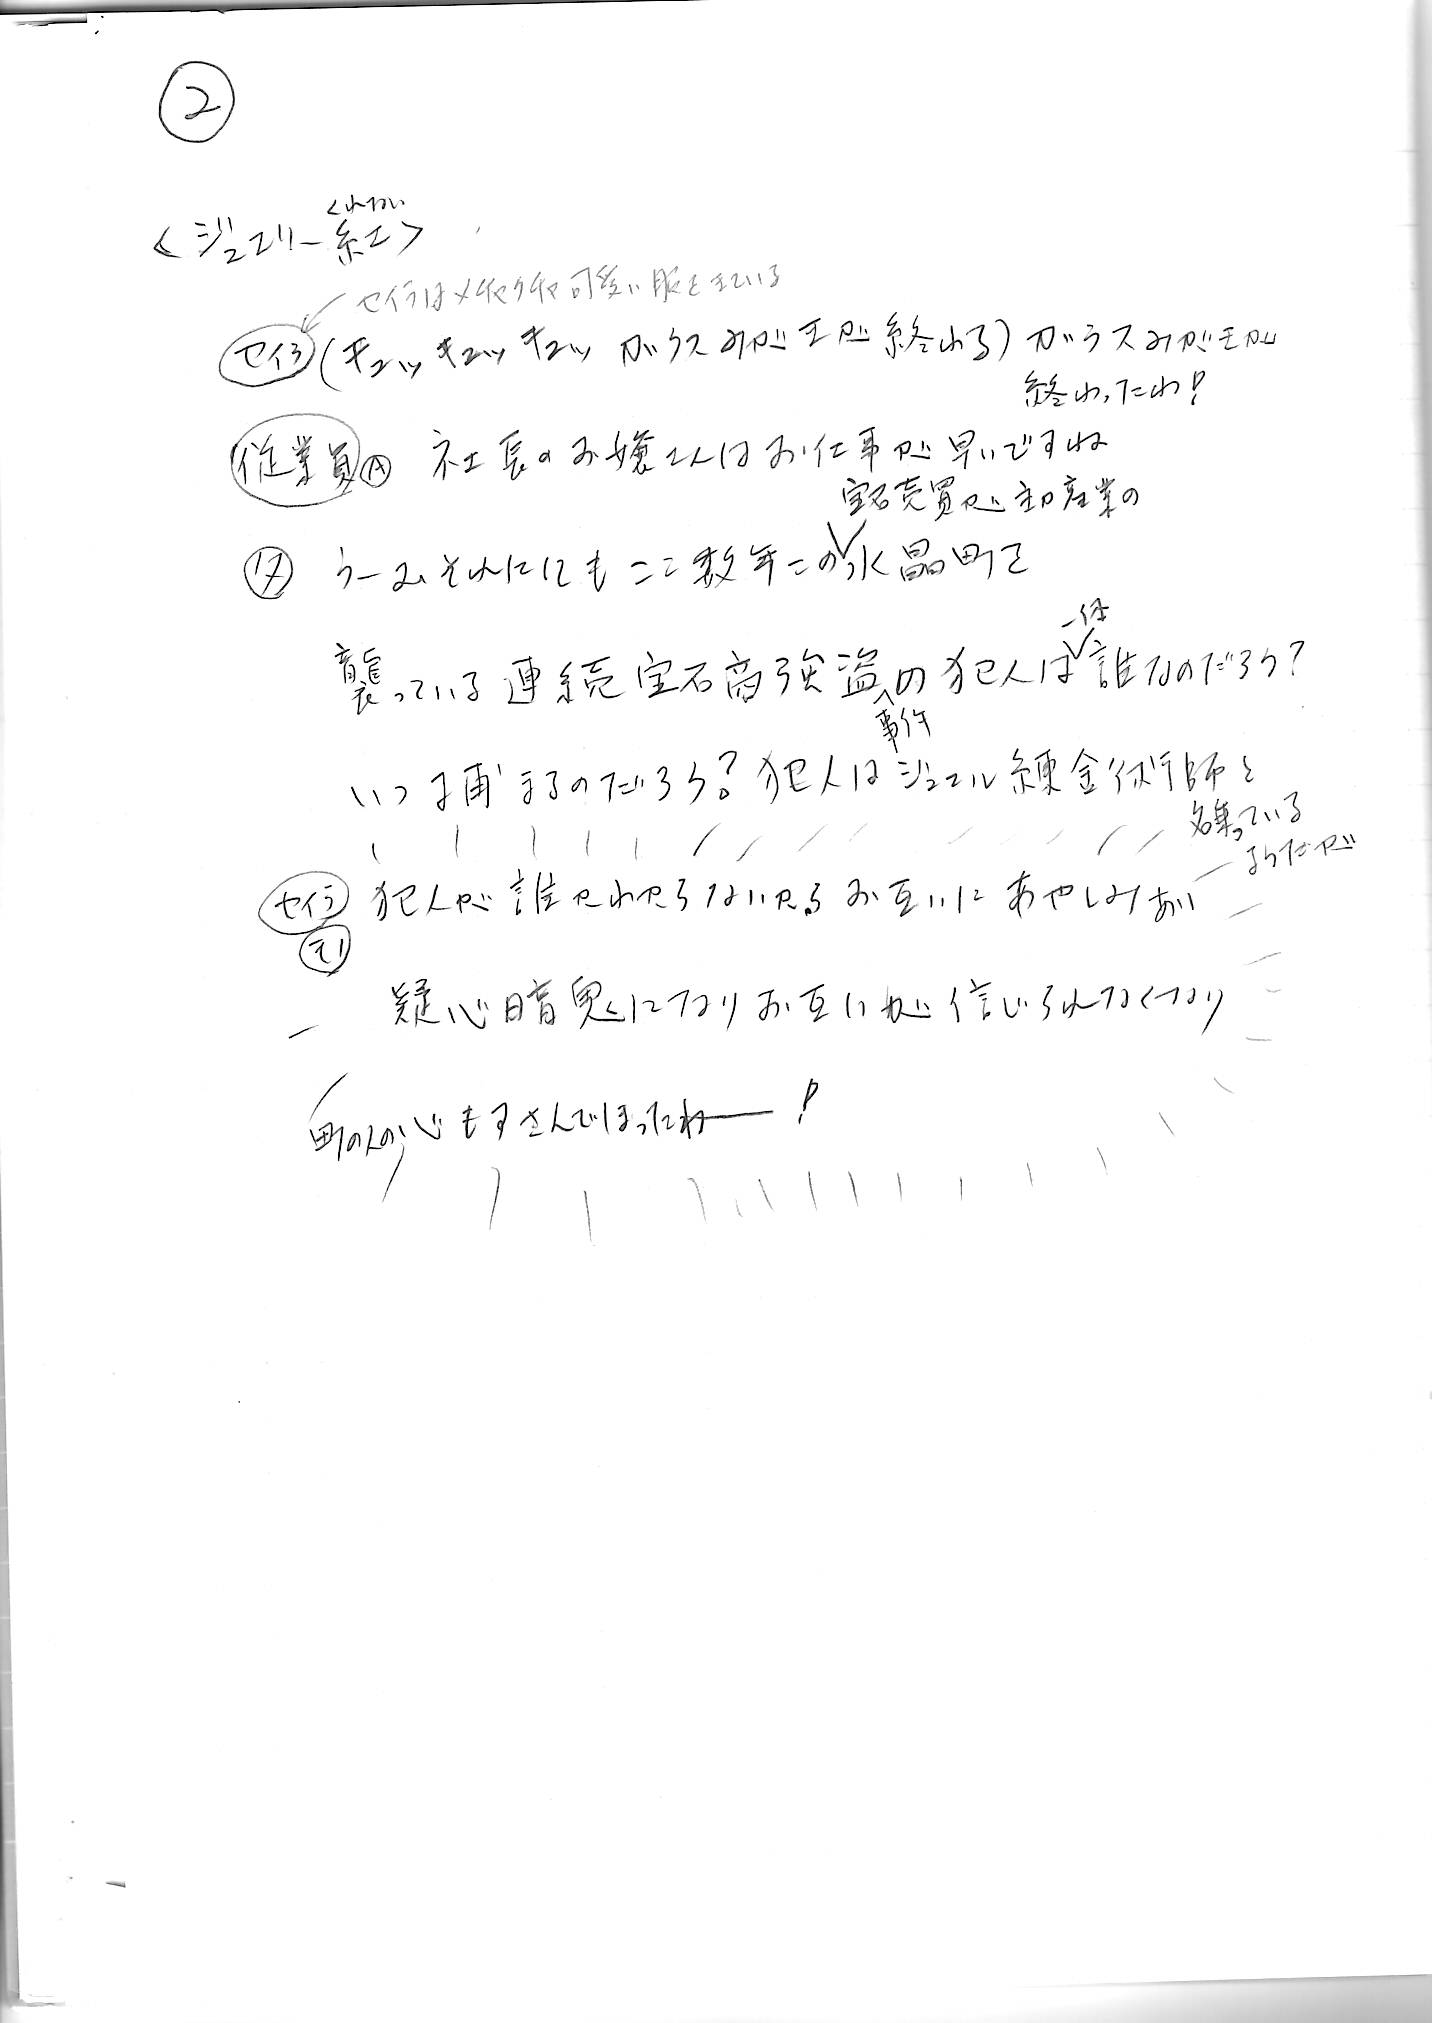 ②
くれない
<ジュエリー紅>
セイラはメチャクチャ可愛い服をきている
セイラ (キュッキュッキュッ ガラスみがきが終わる) ガラスみがきが
終わったわ!
従業員Ⓐ 社長のお嬢さんはお仕事が早いですね
宝石売買が主産業の
うーむそれにしてもここ数年この水晶町を
一体
襲っている連続宝石商強盗の犯人は誰なのだろう?
事件
いつ捕まるのだろう? 犯人はジュエル錬金術師と
名乗っている
ようだが
セイラ 犯人が誰かわからないからお互いにあやしみあい
モノ
疑心暗鬼になりお互いが信じられなくなり
町の人の心もすさんでしまったわー!